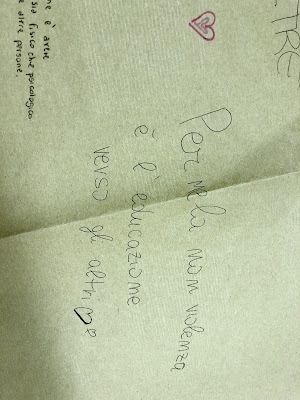 TRE
me è avere
sia fisico che psicologico
e altre persone.
Per me la non violenza
è l'educazione
verso gli altri